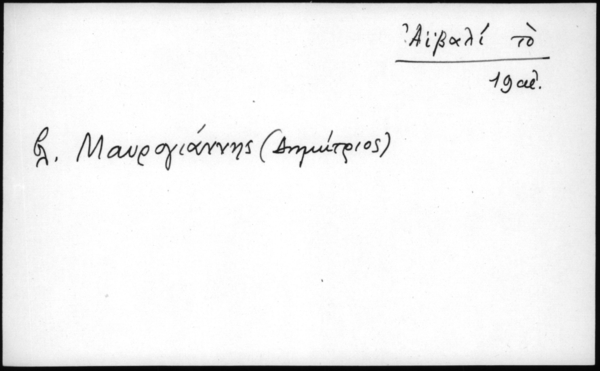 Ἀϊβαλί τὸ
19 αἰ.
βλ. Μαυρογιάννης (Δημήτριος)